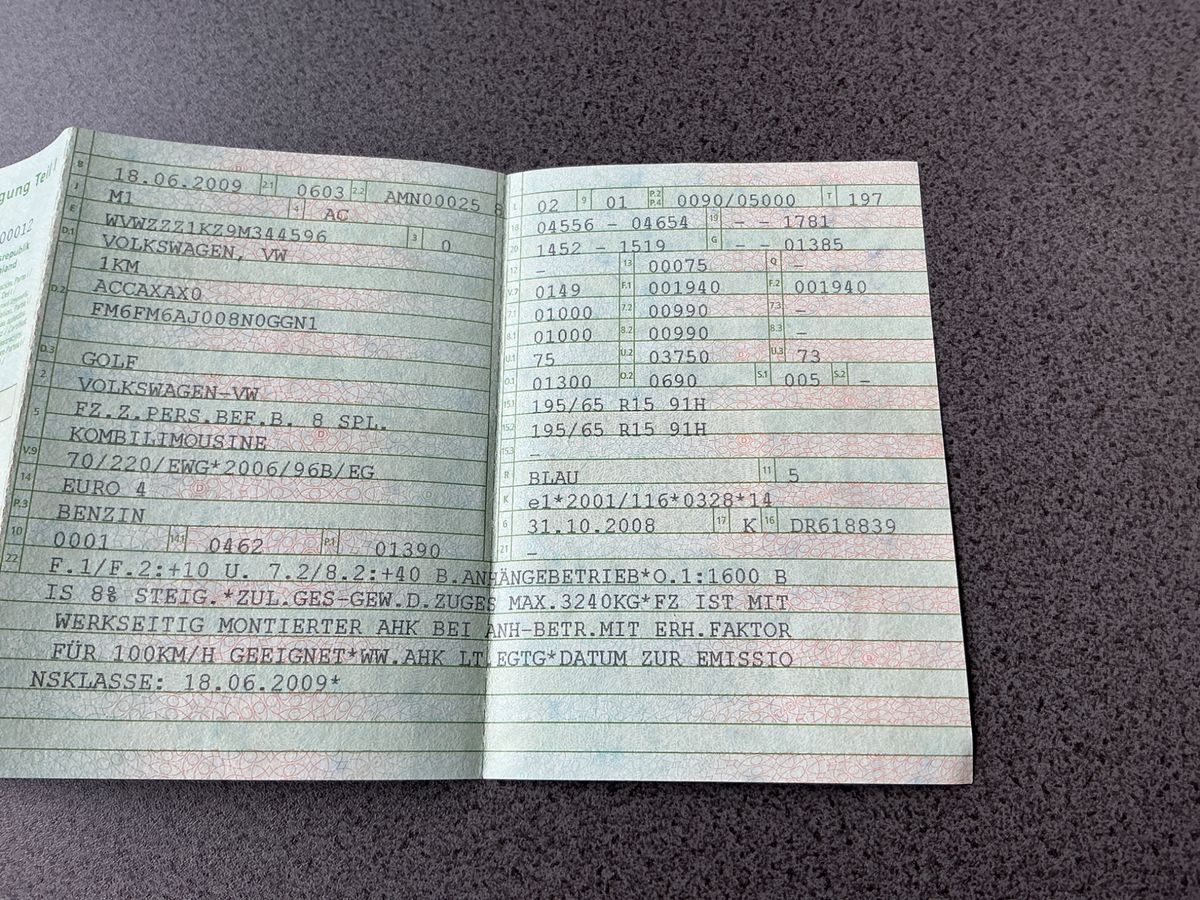 gung Teil
00012
B 18.06.2009 2.1 0603 2.2 AMN00025 8
J M1 4 AC
E WVWZZZ1KZ9M344596 3 0
D.1 VOLKSWAGEN, VW
1KM
D.2 ACCAXAX0
FM6FM6AJ008N0GGN1
D.3 GOLF
2 VOLKSWAGEN-VW
5 FZ.Z.PERS.BEF.B. 8 SPL.
KOMBILIMOUSINE
V.9 70/220/EWG*2006/96B/EG
14 EURO 4
P.3 BENZIN
10 0001 14.1 0462 P.1 01390
22 F.1/F.2:+10 U. 7.2/8.2:+40 B.ANHÄNGEBETRIEB*O.1:1600 B
IS 8% STEIG.*ZUL.GES-GEW.D.ZUGES MAX.3240KG*FZ IST MIT
WERKSEITIG MONTIERTER AHK BEI ANH-BETR.MIT ERH.FAKTOR
FÜR 100KM/H GEEIGNET*WW.AHK LT.EGTG*DATUM ZUR EMISSIO
NSKLASSE: 18.06.2009*
L 02 9 01 P.2 P.4 0090/05000 T 197
18 04556 - 04654 19 - - 1781
20 1452 - 1519 G - - 01385
12 - 13 00075 Q -
V.7 0149 F.1 001940 F.2 001940
7.1 01000 7.2 00990 7.3 -
8.1 01000 8.2 00990 8.3 -
U.1 75 U.2 03750 U.3 73
O.1 01300 O.2 0690 S.1 005 S.2 -
15.1 195/65 R15 91H
15.2 195/65 R15 91H
15.3 -
R BLAU 11 5
K e1*2001/116*0328*14
6 31.10.2008 17 K 16 DR618839
21 -